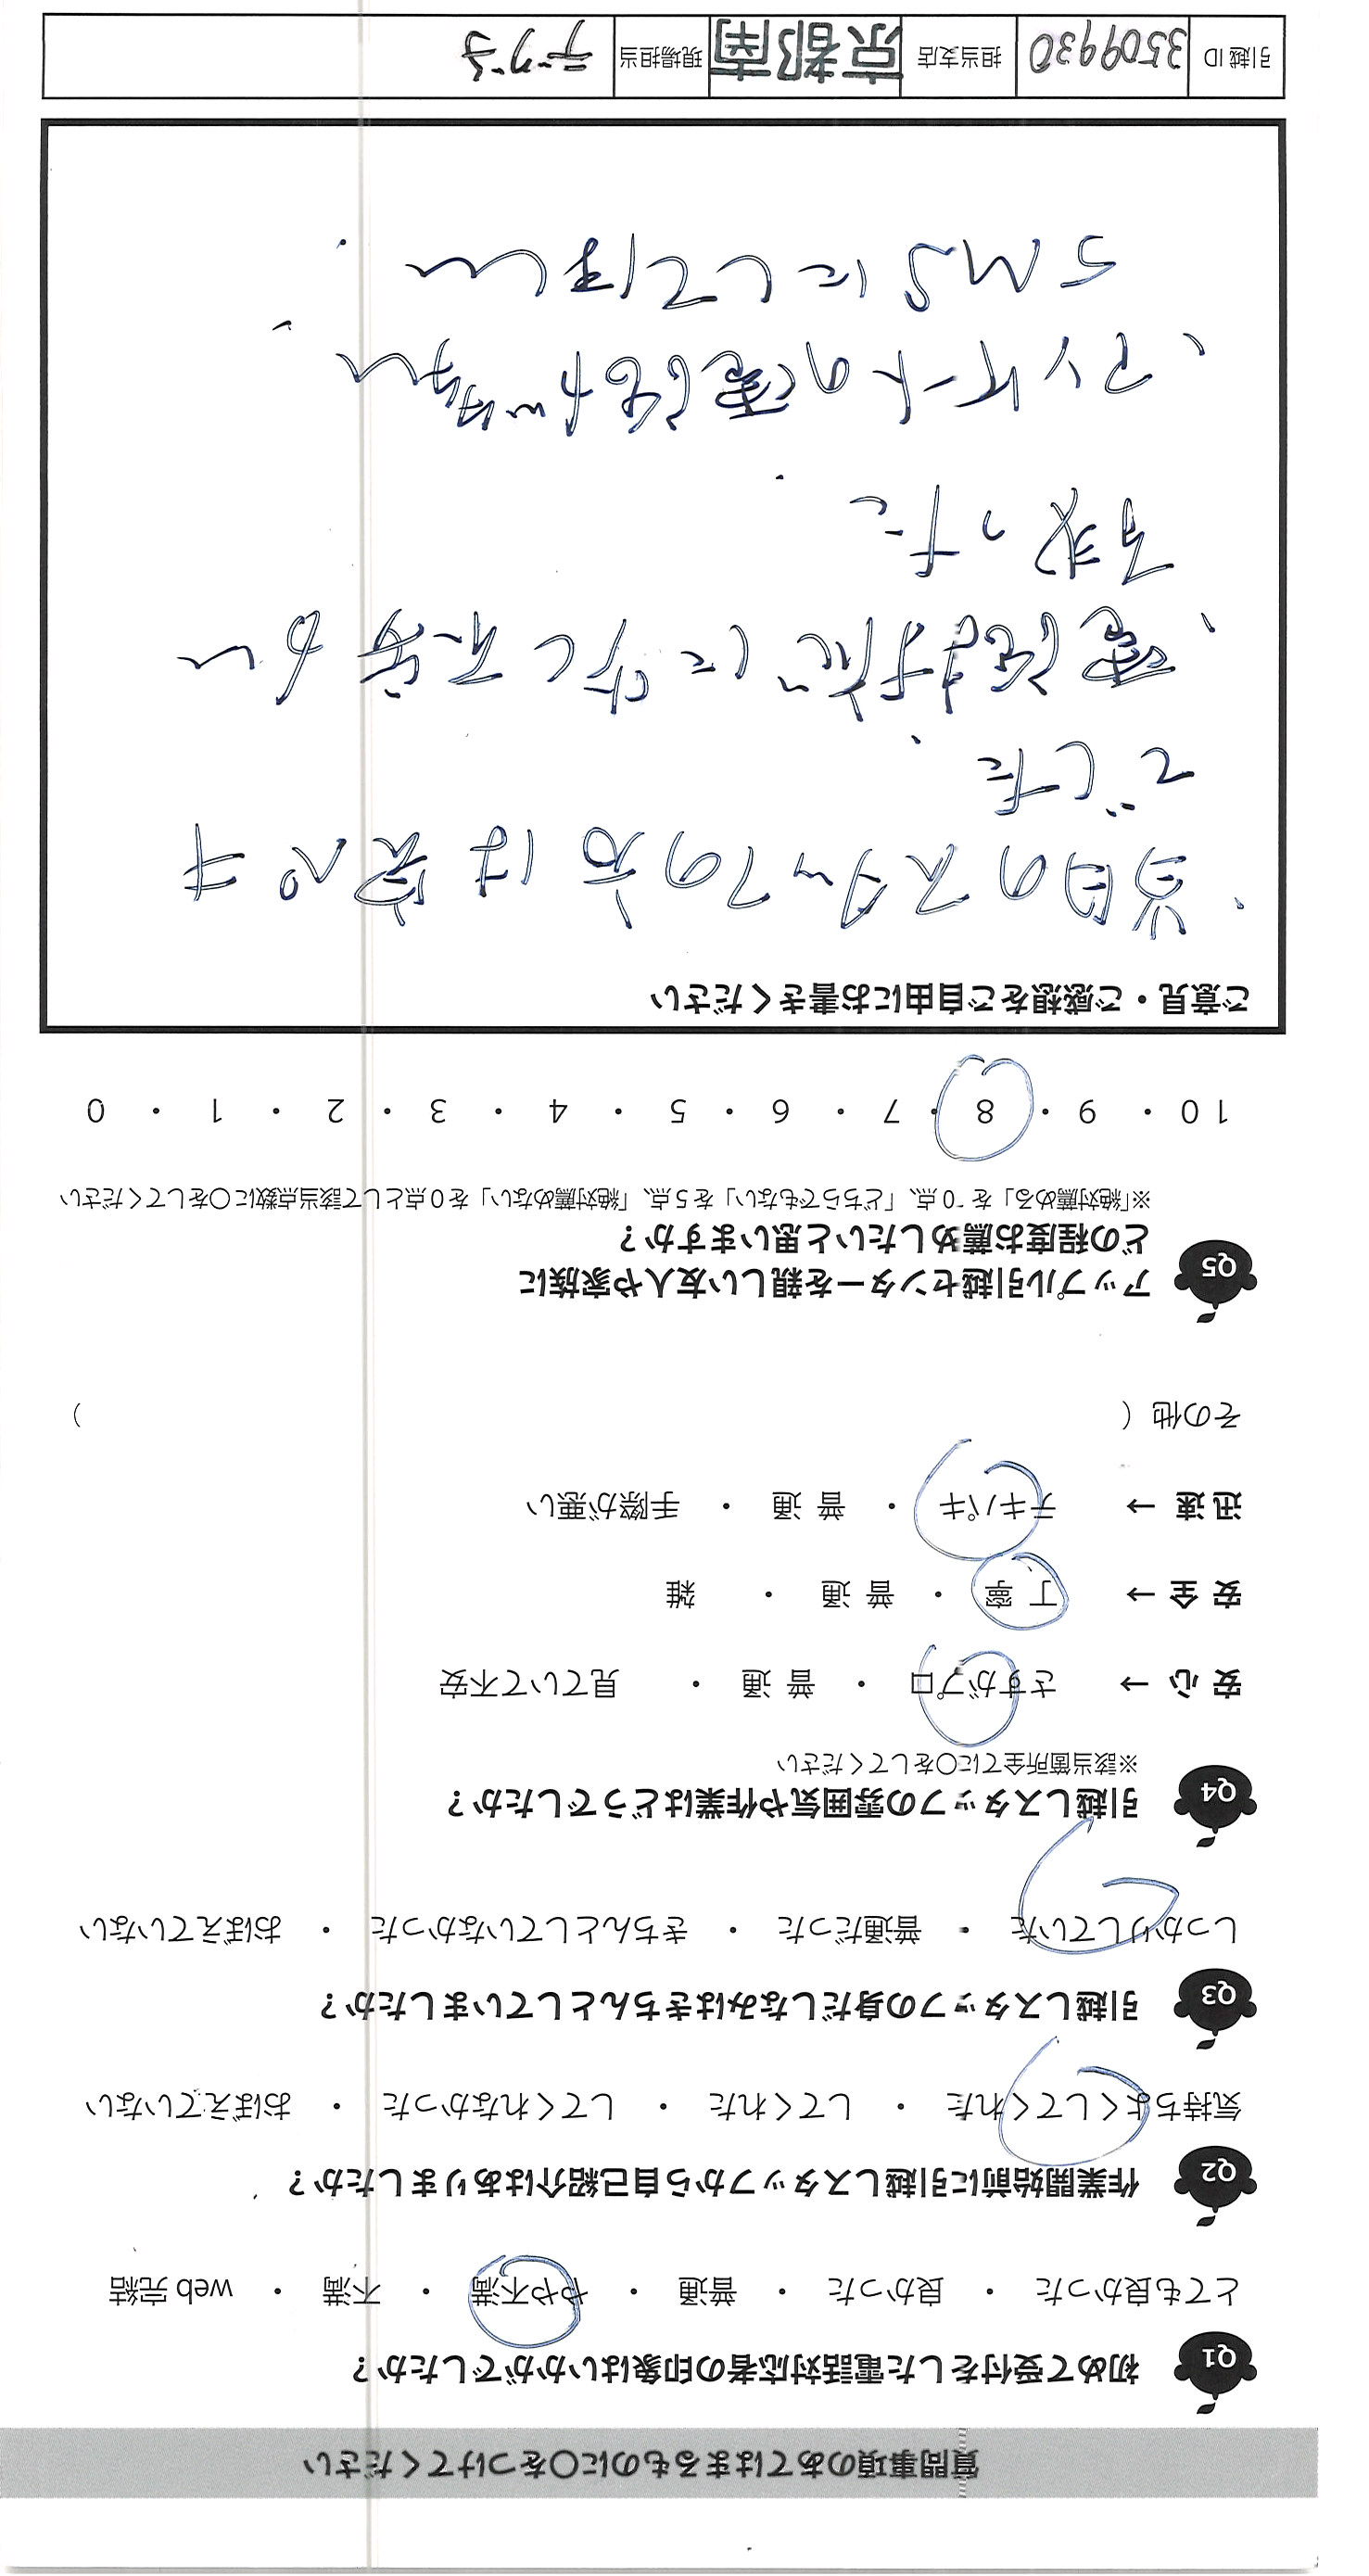 質問事項のあてはまるものに○をつけてください
Q1 初めて受付をした電話対応者の印象はいかがでしたか？
とても良かった ・ 良かった ・ 普通 ・ やや不満 ・ 不満 ・ web 完結
Q2 作業開始前に引越しスタッフから自己紹介はありましたか？
気持ちよくしてくれた ・ してくれた ・ してくれなかった ・ おぼえていない
Q3 引越しスタッフの身だしなみはきちんとしていましたか？
しっかりしていた ・ 普通だった ・ きちんとしていなかった ・ おぼえていない
Q4 引越しスタッフの雰囲気や作業はどうでしたか？
※該当箇所全てに○をしてください
安心 → さすがプロ ・ 普通 ・ 見ていて不安
安全 → 丁寧 ・ 普通 ・ 雑
迅速 → テキパキ ・ 普通 ・ 手際が悪い
その他（ ）
Q5 アップル引越センターを親しい友人や家族に
どの程度お薦めしたいと思いますか？
※「絶対薦める」を 10点、「どちらでもない」を 5点、「絶対薦めない」を 0点として該当点数に○をしてください
10 ・ 9 ・ 8 ・ 7 ・ 6 ・ 5 ・ 4 ・ 3 ・ 2 ・ 1 ・ 0
ご意見・ご感想をご自由にお書きください
・当日のスタッフの方は完ペキ
でした。
・電話対応に対して不安が
有った。
・アンケートの電話が多い、
SMSにしてほしい.
引越ID 3509930 担当支店 京都南 現場担当